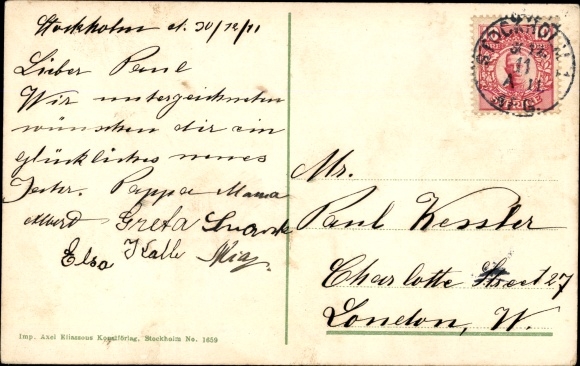 Stockholm d. 30/12/11
Lieber Paul
Wir unterzeichneten
wünschen dir ein
glückliches neues
Jahr. Pappa Mama
Albert Greta
Elsa Kalle
Mr.
Paul Kessler
Charlotte Street 27
London, W.
STOCKHOLM 1
11
Imp. Axel Eliassons Konstförlag, Stockholm No. 1659